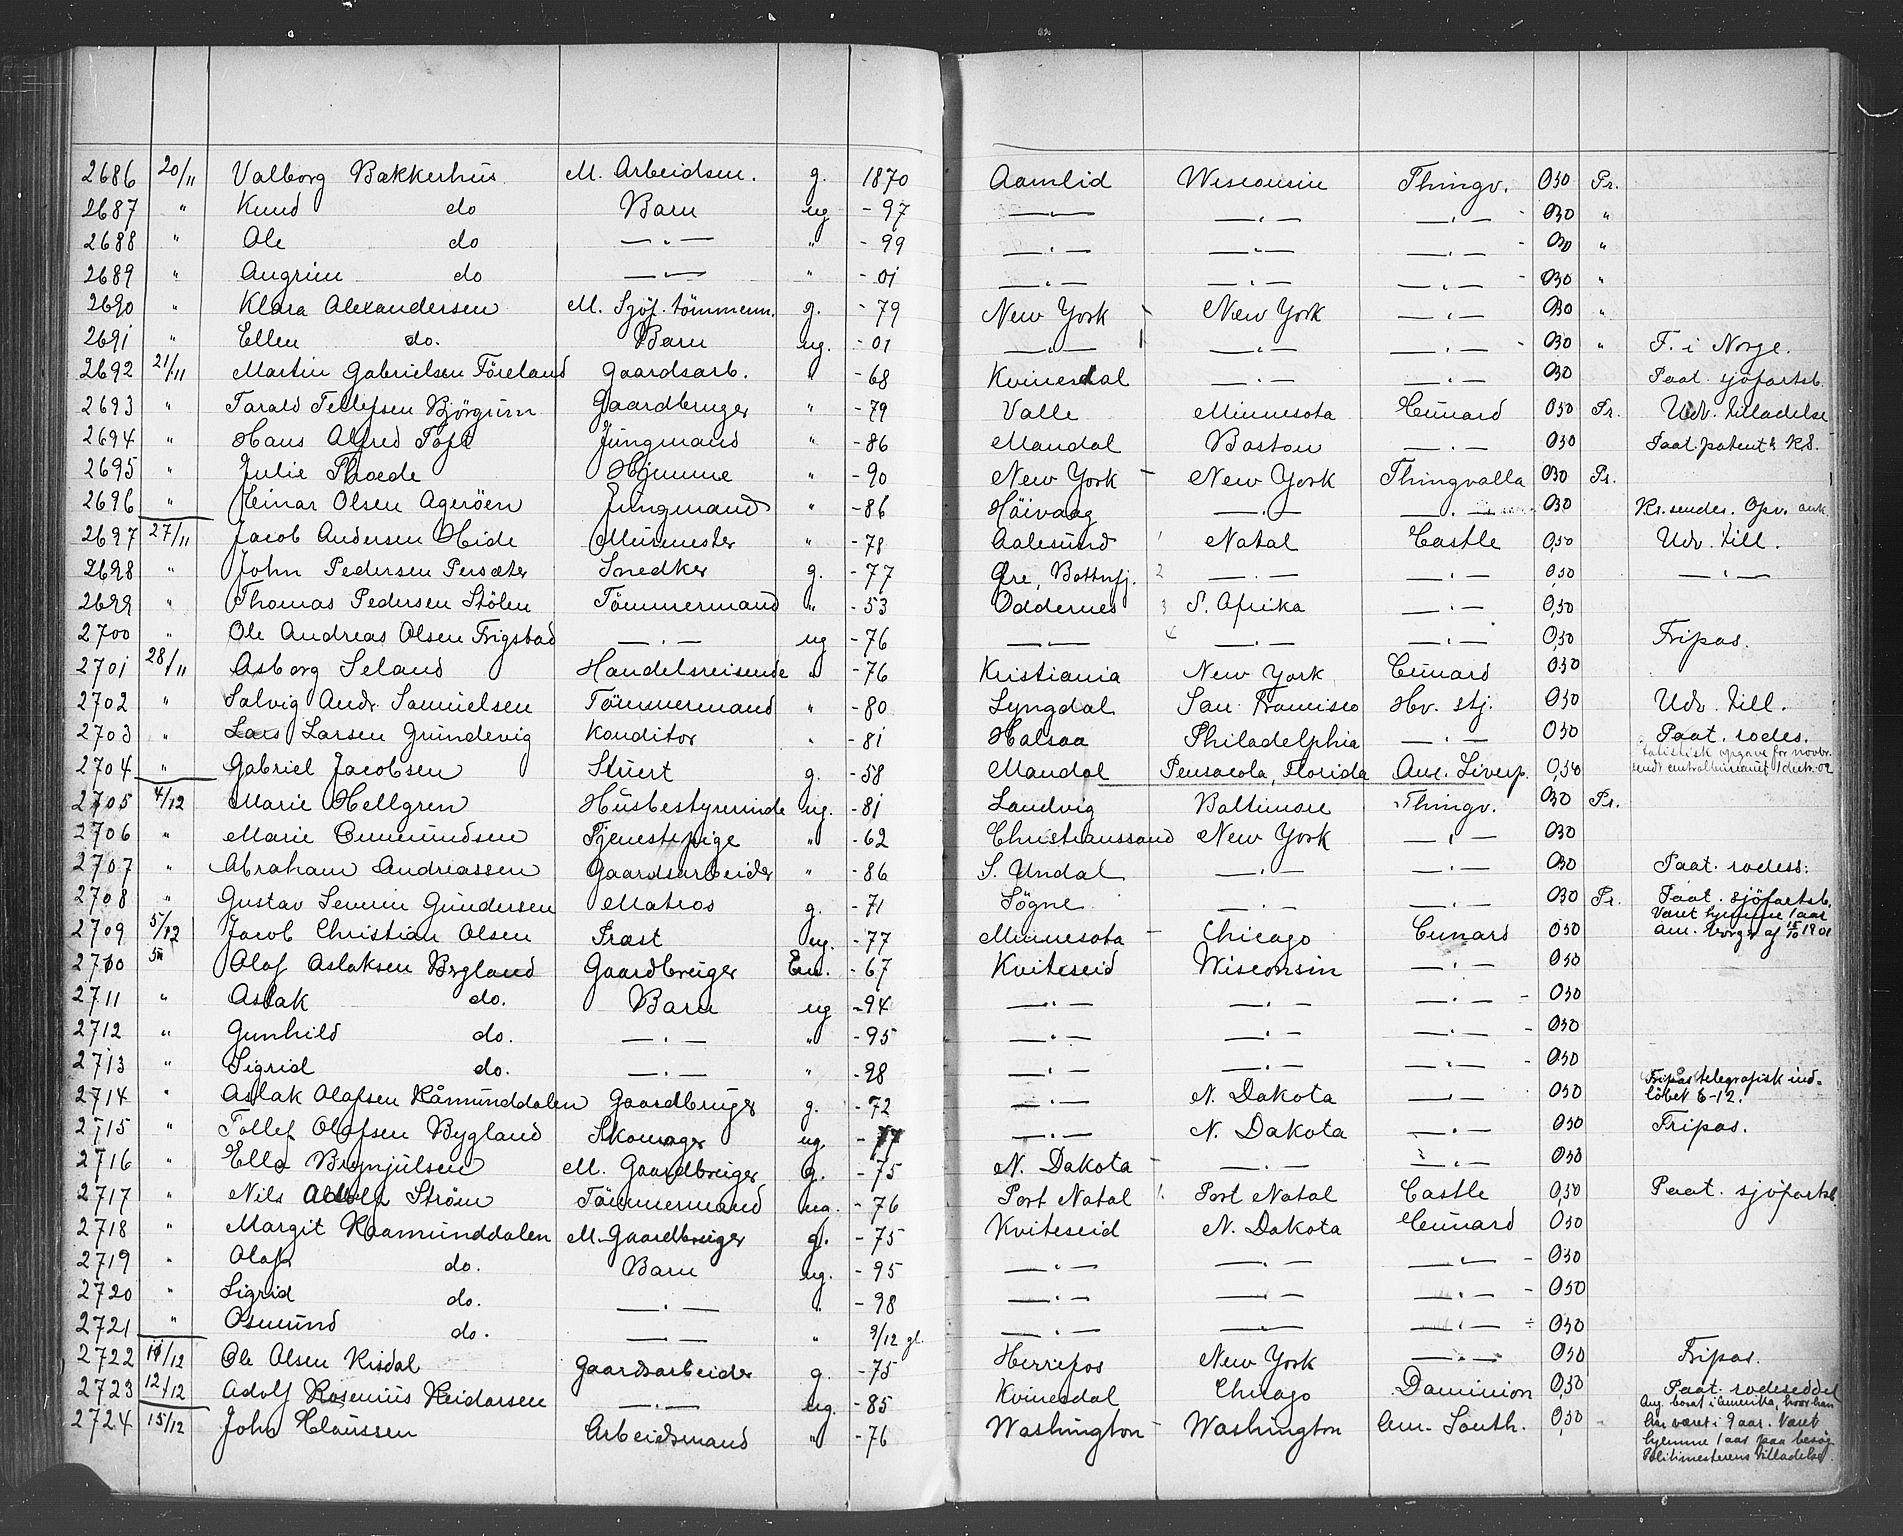 2686 20/11 Valborg Bakkerhus M. Arbeidsm. g. 1870 Aamlid Wisconsin Thingv. 030 Pr.
2687 " Knud do Barn ug -97 —"— —"— —"— 030 "
2688 " Ole do —"— " -99 —"— —"— —"— 030 "
2689 " Angrim do —"— " -01 —"— —"— —"— 030 "
2690 " Klara Alexandersen M. Sjöf. tömmerm. g. -79 New York New York —"— 030 "
2691 " Ellen do. Barn ug. -01 —"— —"— —"— 030 " F. i Norge.
2692 21/11 Martin Gabrielsen Föreland Gaardsarb. " -68 Kvinesdal —"— —"— 030 Paat. sjöfartsb.
2693 " Tarald Tellefsen Björgum Gaardbruger " -79 Valle Minnesota Cunard 030 Pr. Udv. tilladelse
2694 " Hans Alfred Toft Jungmand " -86 Mandal Boston —"— 030 Paat. patent & KS.
2695 " Julie Thoede Hjemme " -90 New York New York Thingvalla 030 Pr.
2696 " Einar Olsen Ageröen Jungmand " -86 Höivaag —"— —"— 030 Kr.sendes. Opv. ank.
2697 27/11 Jacob Andersen Hide Murmester " -78 Aalesund 1 Natal Castle 0,50 Udv. till.
2698 " John Pedersen Persæter Snedker g. -77 Öre, Battnfj. 2 —"— —"— 0,50 —"—
2699 " Thomas Pedersen Stölen Tömmermand " -53 Oddernes 3 S. Afrika —"— 0,50
2700 " Ole Andreas Olsen Frigstad —"— ug -76 —"— 4 —"— —"— 0,50 Fripas.
2701 28/11 Asborg Seland Handelsreisende " -76 Kristiania New York Cunard 030
2702 " Salvig Andr. Samuelsen Tömmermand " -80 Lyngdal San Francisco Hv. stj. 030 Udv. till.
2703 " Lars Larsen Grundevig Konditor " -81 Halsaa Philadelphia —"— 030 Paat. rodes.
2704 " Gabriel Jacobsen Stuert g. -58 Mandal Pensacola, Florida Am. Liverp. 0,50 Statistisk opgave for novbr. sendt centralbureauet 1 dectr. 02
2705 4/12 Marie Hellgren Husbestyrerinde ug. -81 Landvig Baltimore Thingv. 030 Pr.
2706 " Marie Ommundsen Tjenestepige " -62 Christianssand New York —"— 030
2707 " Abraham Andreassen Gaardsarbeider " -86 S. Undal —"— —"— 030 Paat. rodess.
2708 " Gustav Severin Gundersen Matros g. -71 Sögne —"— —"— 030 Pr. Paat. sjöfartsb.
2709 5/12 Jacob Christian Olsen Præst ug. -77 Minnesota Chicago Cunard 030 Været hjemme 1 aar am. borger af 15/10 1901
2710 5/12 Olaf Aslaksen Bygland Gaardbruger Em. -67 Kviteseid Wisconsin —"— 030
2711 " Aslak do. Barn ug -94 —"— —"— —"— 030
2712 " Gunhild do. —"— " -95 —"— —"— —"— 030
2713 " Sigrid do. —"— " -98 —"— —"— —"— 030
2714 " Aslak Olafsen Råmunddalen Gaardbruger g. -72 —"— N. Dakota —"— 030 Fripas telegrafisk indlöbet 6-12.
2715 " Tollef Olafsen Bygland Skomager ug. -77 —"— N. Dakota —"— 030 Fripas.
2716 " Ella Brynjulsen M. Gaardbruger g. -75 N. Dakota —"— —"— 030
2717 " Nils Adolf Ström Tömmermand ug. -76 Port Natal 1. Port Natal Castle 0,50 Paat. sjöfartsb.
2718 " Margit Raamunddalen M. Gaardbruger g. -75 Kviteseid N. Dakota Cunard 030
2719 " Olaf do. Barn ug. -95 —"— —"— —"— 030
2720 " Sigrid do. —"— " -98 —"— —"— —"— 030
2721 " Osmund do. —"— " 9/12 gl. —"— —"— —"— 030
2722 11/12 Ole Olsen Risdal Gaardsarbeider g. -75 Herrefos New York —"— 030 Fripas.
2723 12/12 Adolf Rosenius Reidarsen —"— ug. -85 Kvinesdal Chicago Dominion 0,50 Paat. rodeseddel
2724 15/12 John Claussen Arbeidsmand " -76 Washington Washington Am. South. 0,50 Ang. bosat i Amerika, hvor han
har været i 9 aar. Været
hjemme 1 aar paa besög
Politimesterens tilladelse.